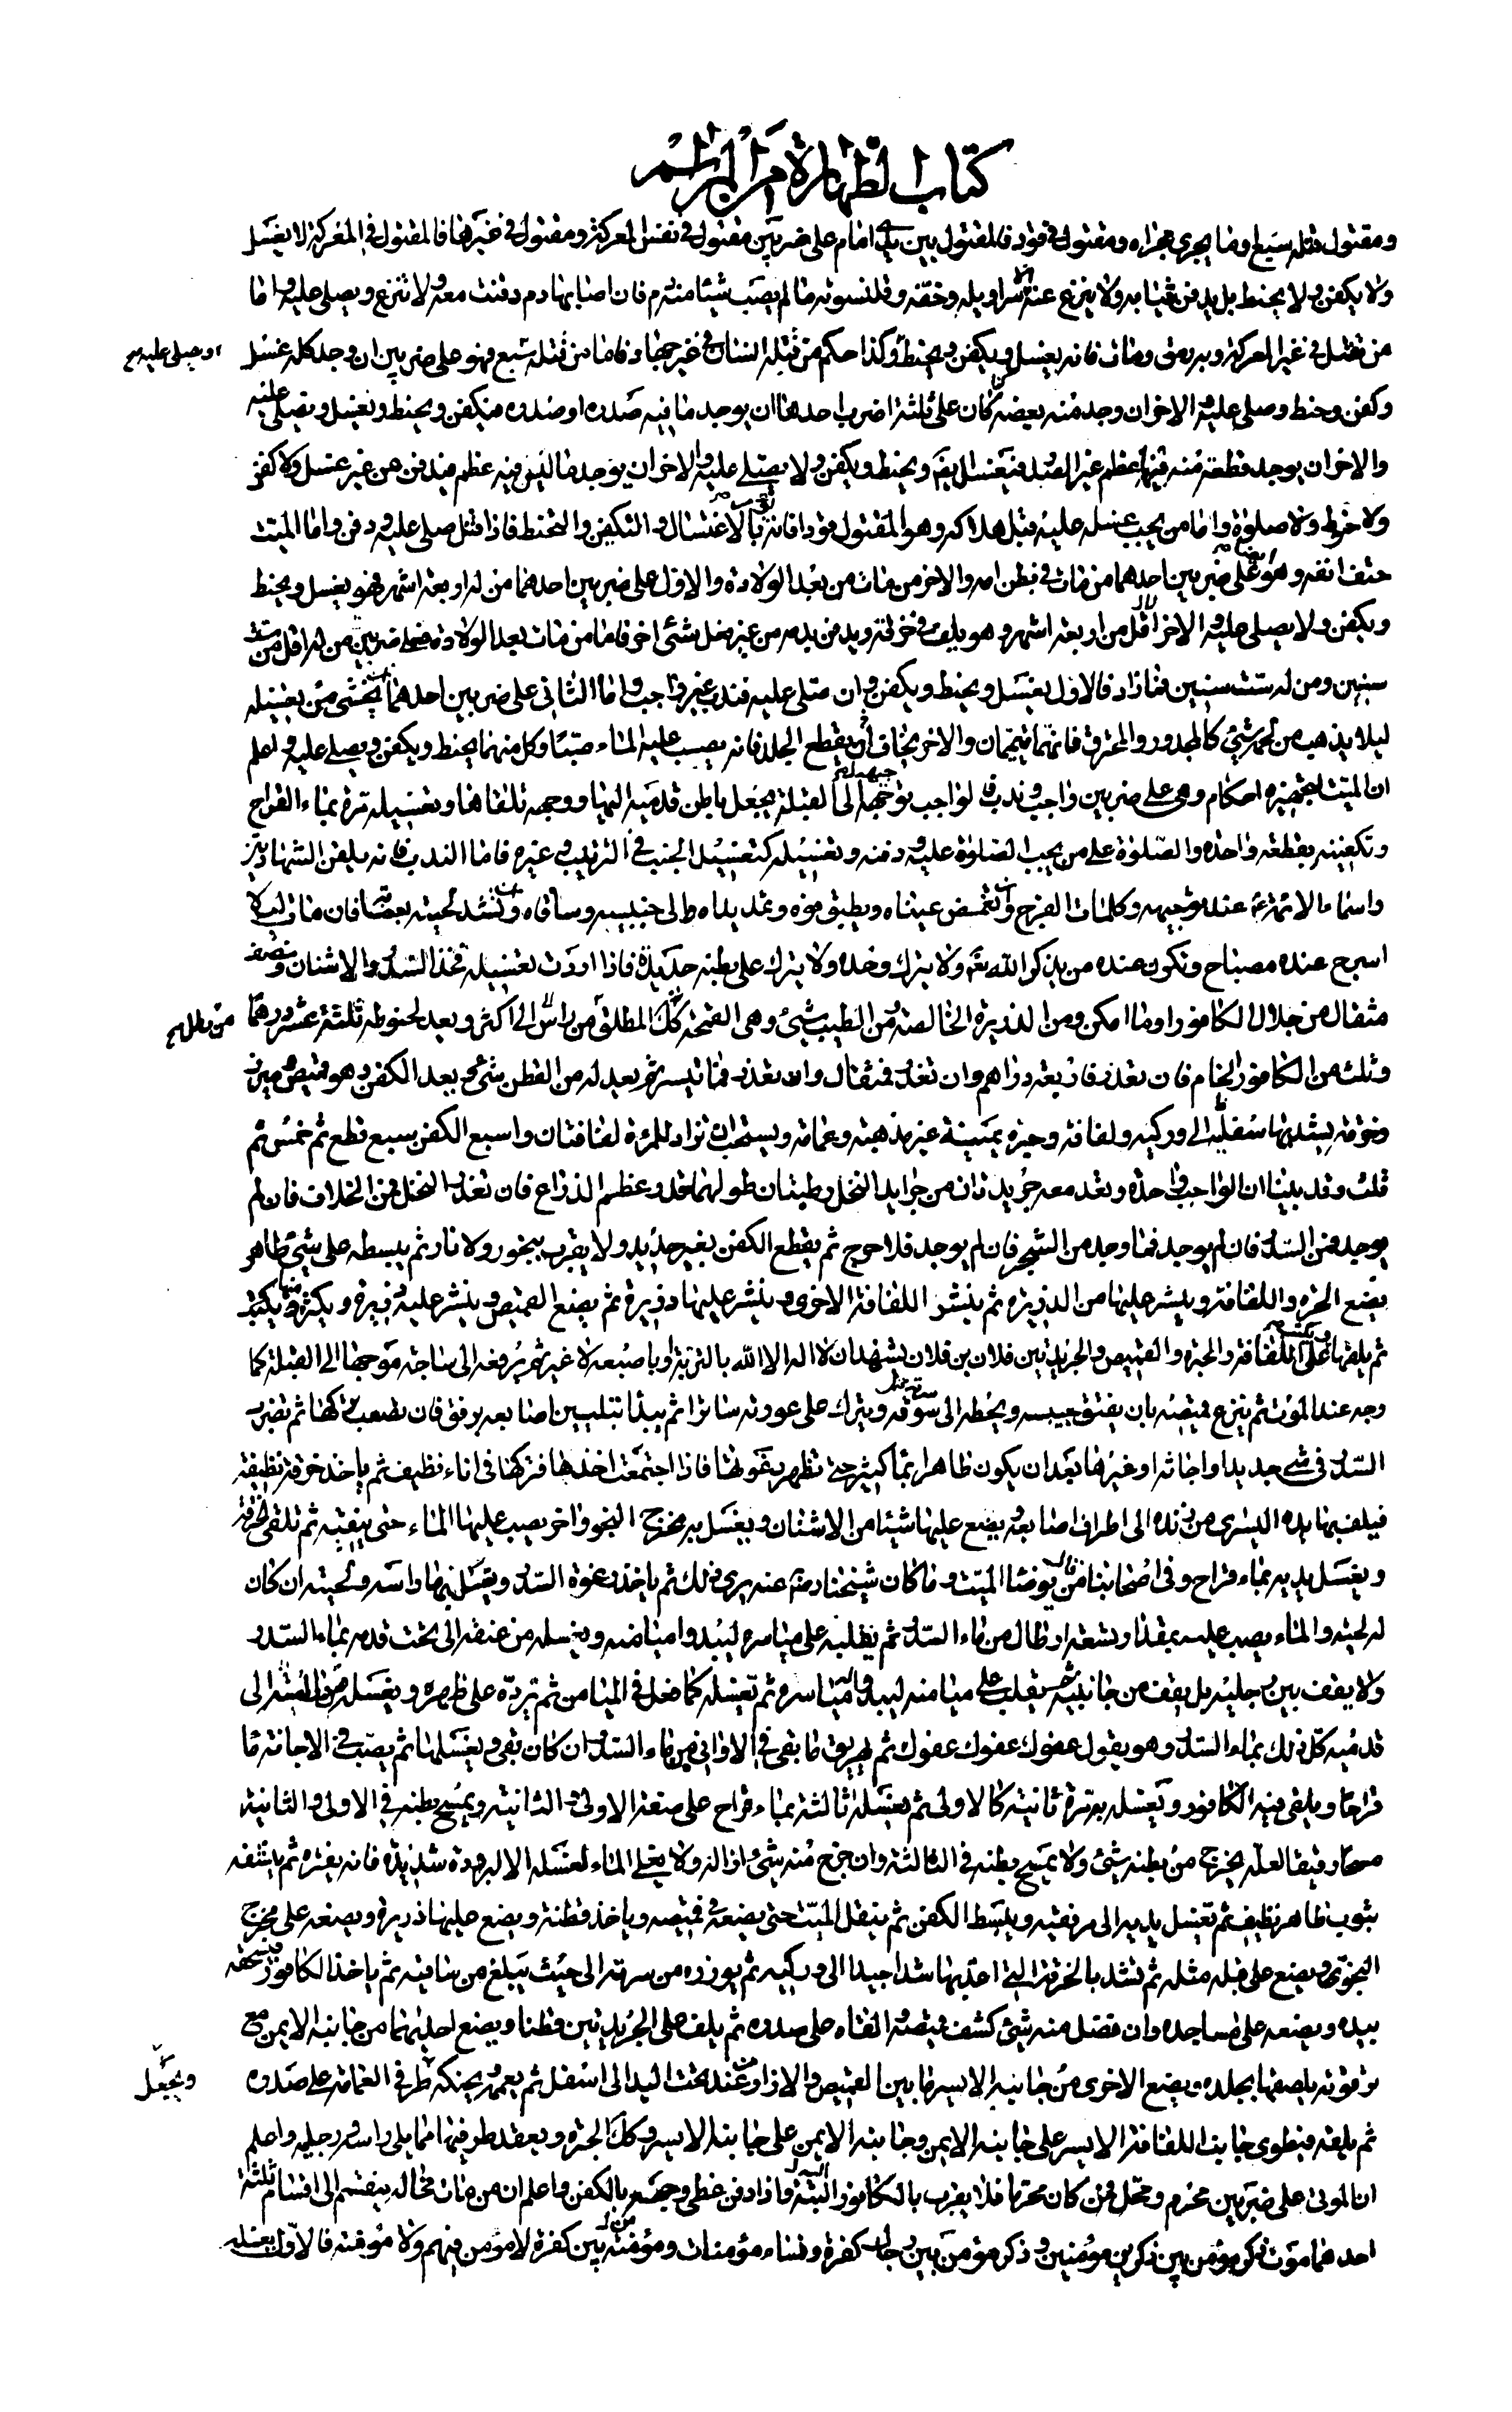 كتاب الطهارة من المراسم
ومقتول قتله سبع وما يجرى مجراه ومقتول فى قود فالمقتول بين يدى امام على ضربين مقتول فى نفس المعركة ومقتول فى غيرها فالمقتول فى المعركة لا يغسل
ولا يكفن ولا يحنط بل يدفن بثيابه ولا ينزع عنه الا سراويله وخفه وقلنسوته ما لم يصب شيئا منها دم فان اصابها دم دفنت معه ولا تنزع ويصلى عليه واما
من نقل فى غير المعركة وبه رمق ومات فانه يغسل ويكفن ويحنط وكذا حكم من قتله انسان فى غير جهاد فاما من قتله سبع فهو على ضربين ان وجد كله غسل
وكفن وحنط وصلى عليه والاخر ان وجد منه بعضه كان على ثلثة اضرب احدها ان يوجد ما فيه صدره او صدره فيكفن ويحنط ويغسل ويصلى عليه
والاخر ان يوجد قطعة منه فيها عظم غير الصدر فيغسل ايضا ويحنط ويكفن ولا يصلى عليه والاخر ان يوجد ما ليس فيه عظم فيدفن من غير غسل ولا كفن
ولا حنوط ولا صلوة واما من يجب غسله عليه قبل هلاكه وهو المقتول قودا فانه يؤمر بالاغتسال والتكفين والتحنط فاذا قتل صلى عليه ودفن واما الميت
حتف انفه وهو على ضربين احدهما من مات فى بطن امه والاخر من مات من بعد الولادة والاول على ضربين احدهما من له اربعة اشهر فهو يغسل ويحنط
ويكفن ولا يصلى عليه والاخر لاقل من اربعة اشهر وهو يلف فى خرقة ويدفن بدمه من غير فعل شئ اخر فاما من مات بعد الولادة فعلى ضربين من له اقل من ست
سنين ومن له ست سنين فما زاد فالاول يغسل ويحنط ويكفن وان صلى عليه فندب غير واجب واما الثانى على ضربين احدهما يخشى من تغسيله
ليلا يذهب من لحمه شئ كالمجدور والمحترق فانهما ييممان والاخر يخاف ان يقطع الجلد فانه يصب عليه الماء صبا وكل منهما يحنط ويكفن ويصلى عليه واعلم
ان الميت لتجهيزه احكام وهى على ضربين واجب وندب فالواجب توجيهه الى القبلة يجعل باطن قدميه اليها ووجهه تلقاها وتغسيله مرة بماء القراح
وتكفينه بقطعة واحدة والصلوة على من يجب الصلوة عليه ودفنه وتغسيله كتغسيل الجنب فى الترتيب وغيره فاما الندب فانه يلقن الشهادتين
واسماء الائمة ع عند توجيهه وكلمات الفرج وتغمض عيناه ويطبق فوه وتمد يداه الى جنبيه وساقاه وتشد لحيته بعصابة فان مات ليلا
اسرج عنده مصباح وتكون عنده من يذكر الله تعم ولا يترك وحده ولا يترك على بطنه حديدة فاذا اردت تغسيله فخذ السدر والاشنان ونصف
مثقال من جلال الكافور او ما امكن ومن الذريرة الخالصة من الطيب شئ وهى القمحة كل المطلق من راس الى اكثر ويعد لحنوطه ثلثة عشر درهما
وثلث من الكافور الخام فان تعذر فاربعة دراهم وان تعذر فمثقال وان تعذر فما تيسر ثم يعد له من القطن شئ ثم يعد الكفن وهو قميص وميزر
وخرقة يشد بها سفليه الى وركيه ولفافة وحبرة يمنية غير مذهبة وعمامة ويستحب ان تزاد للمرة لفافتان واسبع الكفن سبع قطع ثم خمس ثم
ثلث وقد بينا ان الواجب واحدة وتعد معه جريدتان من جرايد النخل رطبتان طولهما قدر عظم الذراع فان تعذر النخل فمن الخلاف فان لم
يوجد فمن السدر فان لم يوجد فما وجد من الشجر فان لم يوجد فلا حرج ثم يقطع الكفن بغير حديد ولا يقرب ببخور ولا نار ثم يبسطه على شئ طاهر
يضع الحبرة واللفافة وينثر عليها من الذريرة ثم ينشر اللفافة الاخرى وينثر عليها ذريرة ثم يضع القميص وينثر عليه ذريرة ويكثر منها ويكتب
ثم يلفها على اللفافة والحبرة والقميص والجريدتين فلان بن فلان يشهد ان لا اله الا الله بالتربة او باصبعه لا غير ثم يرفعه الى ساجة موجها الى القبلة كما
وجه عند الموت ثم ينزع قميصه بان يفتق جيبه ويحطه الى سوقه ويترك على عورته ساترا ثم يبدأ بتليين اصابعه برفق فان تصعبت تركها ثم تضرب
السدر فى شئ جديد او اجانة او غيرها بعد ان يكون طاهرا بماء كثير حتى تظهر رغوتها فاذا اجتمعت اخذها فتركها فى اناء نظيف ثم ياخذ خرقة نظيفة
فيلف بها يده اليسرى من زنده الى اطراف اصابعه ويضع عليها شيئا من الاشنان ويغسل به مخرج النجو واخر يصب عليها الماء حتى ينقيه ثم تلقى الخرقة
ويغسل يديه بماء قراح وفى اصحابنا من قال يوضأ الميت وما كان شيخنا رضى عنه يرى ذلك ثم ياخذ رغوة السدر ويغسل بها راسه ولحيته ان كان
له لحية والماء يصب عليه بمقدار تسعة ارطال من ماء السدر ثم يقلبه على مياسره ليبدوا ميامنه ويغسله من عنقه الى تحت قدمه بماء السدر
ولا يقف بين رجليه بل يقف من جانبه ثم يقلب على ميامنه ليبدوا مياسره ثم تغسله كما فعل فى الميامن ثم ترده على ظهره ويغسله من راسه الى
قدميه كل ذلك بماء السدر وهو يقول عفوك عفوك عفوك ثم يهريق ما بقى فى الاوانى من ماء السدر ان كان بقى ويغسلها ثم يصب فى الاجانة ما
قراحا ويلقى فيه الكافور ويغسله به مرة ثانية كالاولى ثم يغسله ثالثة بماء قراح على صفة الاولى والثانية ويمسح بطنه فى الاولى والثانية
مسحا رفيقا لعله يخرج من بطنه شئ ولا يمسح بطنه فى الثالثة وان خرج منه شئ ازاله ولا يغلى الماء لغسله الا لبرودة شديدة فانه يفتره ثم ينشفه
بثوب طاهر نظيف ثم تغسل يديه الى مرفقيه ويبسط الكفن ثم ينقل الميت حتى يضعه فى قميصه وياخذ قطنة ويضع عليها ذريرة ويضعه على مخرج
النجو ويضع على قبله مثله ثم تشد بالخرقة التى اعدها شدا جيدا الى وركيه ثم يوزره من سرته الى حيث يبلغ من ساقيه ثم ياخذ الكافور فيسحقه
بيده ويضعه على مساجده وان فضل منه شئ كشف قميصه والقاه على صدره ثم يلف على الجريدتين قطنا ويضع احديهما من جانبه الايمن مع
ترقوته يلصقها بجلده ويضع الاخرى من جانبه الايسر ما بين القميص والازار من عند تحت اليد الى اسفل ثم يعممه يحنكه طرفى العمامة على صدره
ويجعل
ثم يلفه فيطوى جانب اللفافة الايسر على جانبه الايمن وجانبه الايمن على جانبه الايسر وكذلك الحبرة ويعقد طرفيها مما يلى راسه ورجليه واعلم
ان الموتى على ضربين محرم ومحل فمن كان محرما فلا يقرب بالكافور البتة واذا دفن غطى وجهه بالكفن واعلم ان من مات فحاله ينقسم الى اقسام ثلثة
احدها موت ذكر مؤمن بين ذكرين مؤمنين وذكر مؤمن بين رجال كفرة ونساء مؤمنات ومؤمنة بين كفرة لا مؤمن فيهم ولا مؤمنة فالاول يغسله